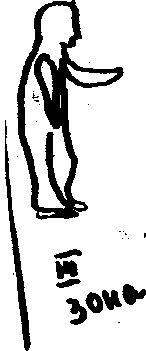 III
зона